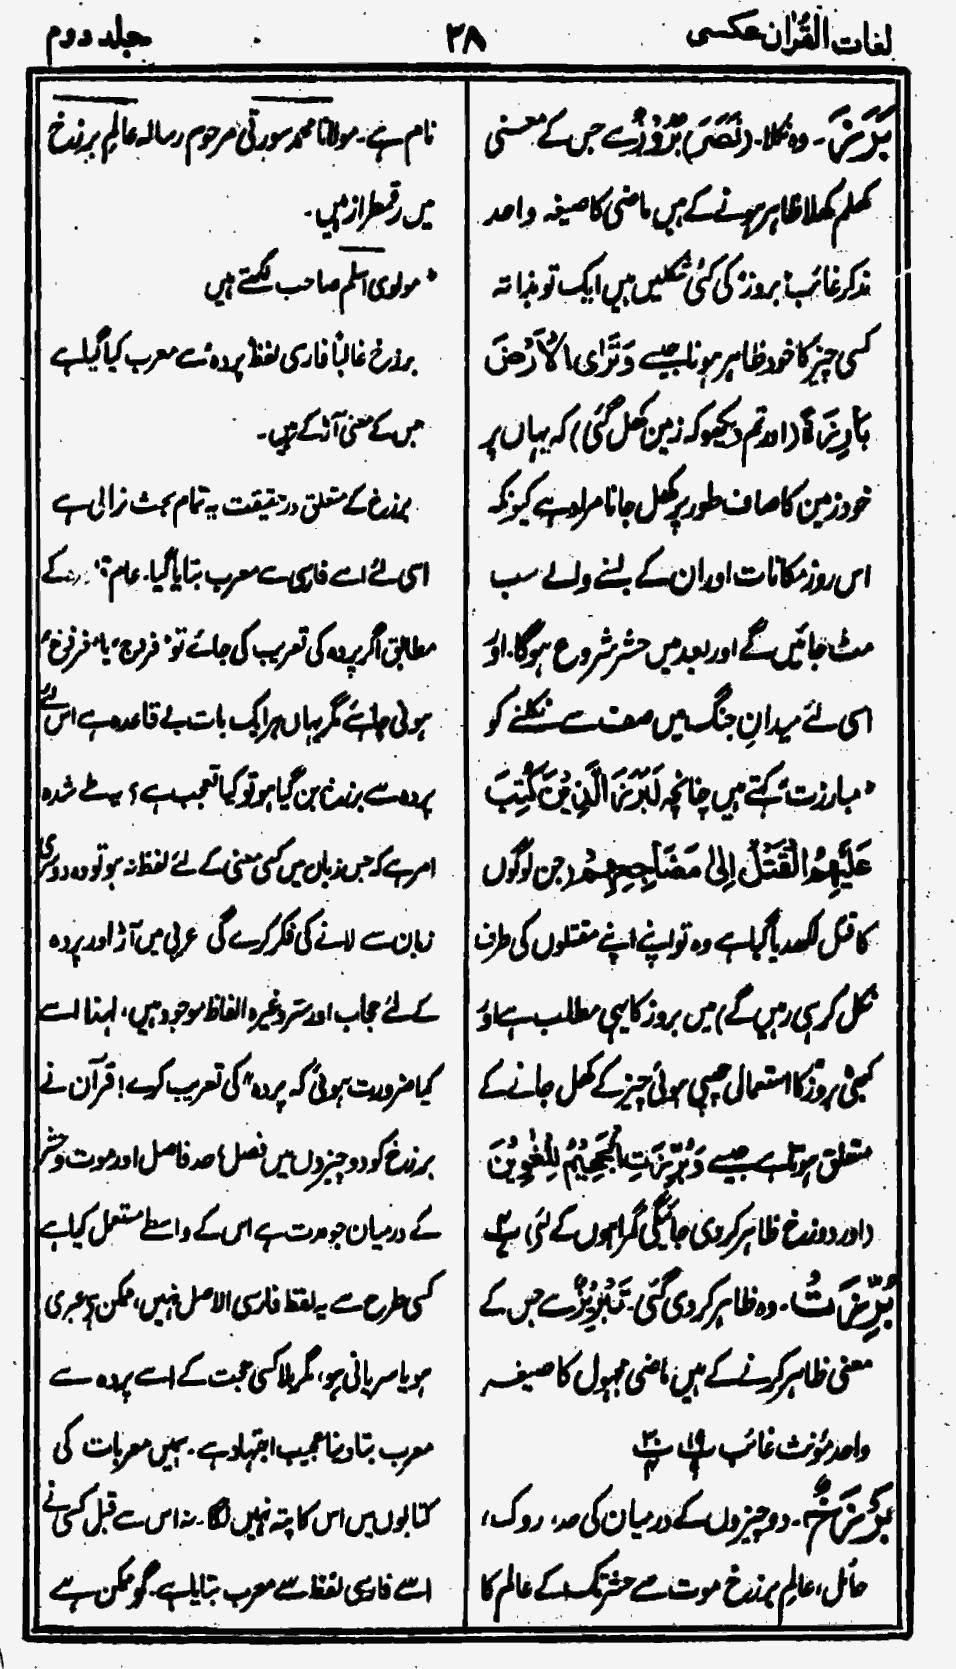 لغات القرآن عکسی
۳۸
جلد دوم
بَرَزَ ۔ وہ نکلا ۔ (نَصَرَ) بُرُوْزٌ سے جس کے معنی
کھلم کھلا ظاہر ہونے کے ہیں ماضی کا صیغہ واحد
مذکر غائب؛ بروز کی کئی شکلیں ہیں ایک تو بذاتہ
کسی چیز کا خود ظاہر ہونا جیسے وَتَرَى الْاَرْضَ
بَارِزَةً (اور تم دیکھو کہ زمین کھل گئی) کہ یہاں پر
خود زمین کا صاف طور پر کھل جانا مراد ہے کیونکہ
اس روز مکانات اور ان کے بسنے والے سب
مٹ جائیں گے اور بعد میں حشر شروع ہوگا۔ اور
اسی لئے میدانِ جنگ میں صف سے نکلنے کو
"مبارزت" کہتے ہیں چنانچہ لَبَرَزَ الَّذِيْنَ كُتِبَ
عَلَيْهِمُ الْقَتْلُ اِلٰى مَضَاجِعِهِمْ (جن لوگوں
کا قتل لکھ دیا گیا ہے وہ تو اپنے اپنے مقتلوں کی طرف
نکل کر ہی رہیں گے) میں بروز کا یہی مطلب ہے اور
کبھی بروز کا استعمال چھپی ہوئی چیز کے کھل جانے کے
متعلق ہوتا ہے جیسے وَبُرِّزَتِ الْجَحِيْمُ لِلْغٰوِيْنَ
(اور دوزخ ظاہر کردی جائیگی گمراہوں کے لئے)
بُرِّزَتْ ۔ وہ ظاہر کردی گئی۔ تَبْرِيْزٌ سے جس کے
معنی ظاہر کرنے کے ہیں ماضی مجہول کا صیغہ
واحد مؤنث غائب
بَرْزَخٌ ۔ دو چیزوں کے درمیان کی حد، روک،
حائل، عالمِ برزخ موت سے حشر تک کے عالم کا
نام ہے۔ مولانا محمد سورتی مرحوم رسالہ عالمِ برزخ
میں رقمطراز ہیں۔
"مولوی اسلم صاحب لکھتے ہیں
برزخ غالباً فارسی لفظ پردہ سے معرب کیا گیا ہے
جس کے معنی آڑ کے ہیں۔
برزخ کے متعلق درحقیقت یہ تمام بحث نرالی ہے
اسی لئے اسے فارسی سے معرب بتایا گیا۔ عام کے
مطابق اگر پردہ کی تعریب کی جائے تو "فردج" یا "فرزخ"
ہونی چاہئے مگر یہاں ہر ایک بات بے قاعدہ ہے اس لئے
پردہ سے برزخ بن گیا ہو تو کیا تعجب ہے؟ یہ طے شدہ
امر ہے کہ جس زبان میں کسی معنی کے لئے لفظ نہ ہو تو وہ دوسری
زبان سے لانے کی فکر کرے گی عربی میں آڑ اور پردہ
کے لئے حجاب اور ستر وغیرہ الفاظ موجود ہیں، لہذا اسے
کیا ضرورت ہوئی کہ "پردہ" کی تعریب کرے! قرآن نے
برزخ کو دو چیزوں میں فصل، حد فاصل اور موت و حشر
کے درمیان جو مدت ہے اس کے واسطے مستعمل کیا ہے
کسی طرح سے یہ لفظ فارسی الاصل نہیں، ممکن ہے عبری
ہو یا سریانی ہو، مگر بلا کسی حجت کے اسے پردہ سے
معرب بتا دینا عجیب اجتہاد ہے۔ ہمیں معربات کی
کتابوں میں اس کا پتہ نہیں لگا۔ نہ اس سے قبل کسی نے
اسے فارسی لفظ سے معرب بتایا ہے۔ گو ممکن ہے